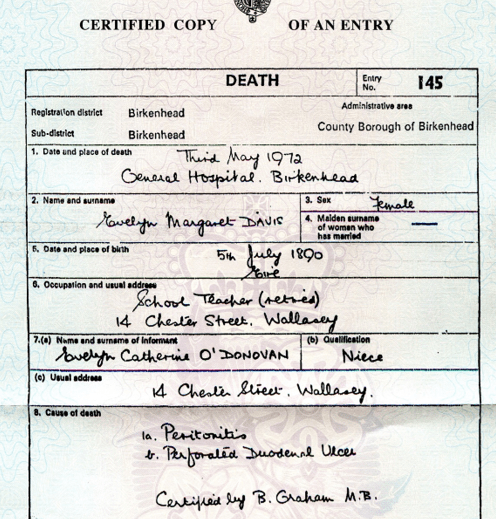 CERTIFIED COPY OF AN ENTRY
DEATH
Entry No. 145
Registration district Birkenhead
Administrative area
Sub-district Birkenhead
County Borough of Birkenhead
1. Date and place of death
Third May 1972
General Hospital. Birkenhead
2. Name and surname
Evelyn Margaret DAVIS
3. Sex Female
4. Maiden surname of woman who has married —
5. Date and place of birth
5th July 1890
Eire
6. Occupation and usual address
School Teacher (retired)
14 Chester Street. Wallasey
7.(a) Name and surname of informant
Evelyn Catherine O'DONOVAN
(b) Qualification
Niece
(c) Usual address
14 Chester Street. Wallasey.
8. Cause of death
1a. Peritonitis
b. Perforated Duodenal Ulcer
Certified by B. Graham M.B.